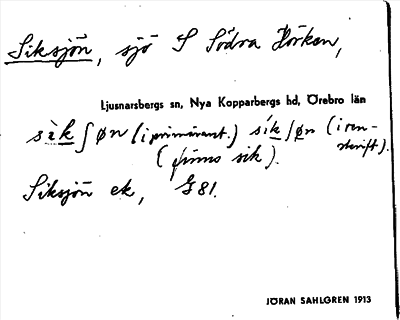 Siksjön, sjö S Södra Hörken,
Ljusnarsbergs sn, Nya Kopparbergs hd, Örebro län
sìkʃøn (i primäruppt.) síkʃøn (i ren-
skrift).
(finns sik).
Siksjön ek, G 81.
JÖRAN SAHLGREN 1913